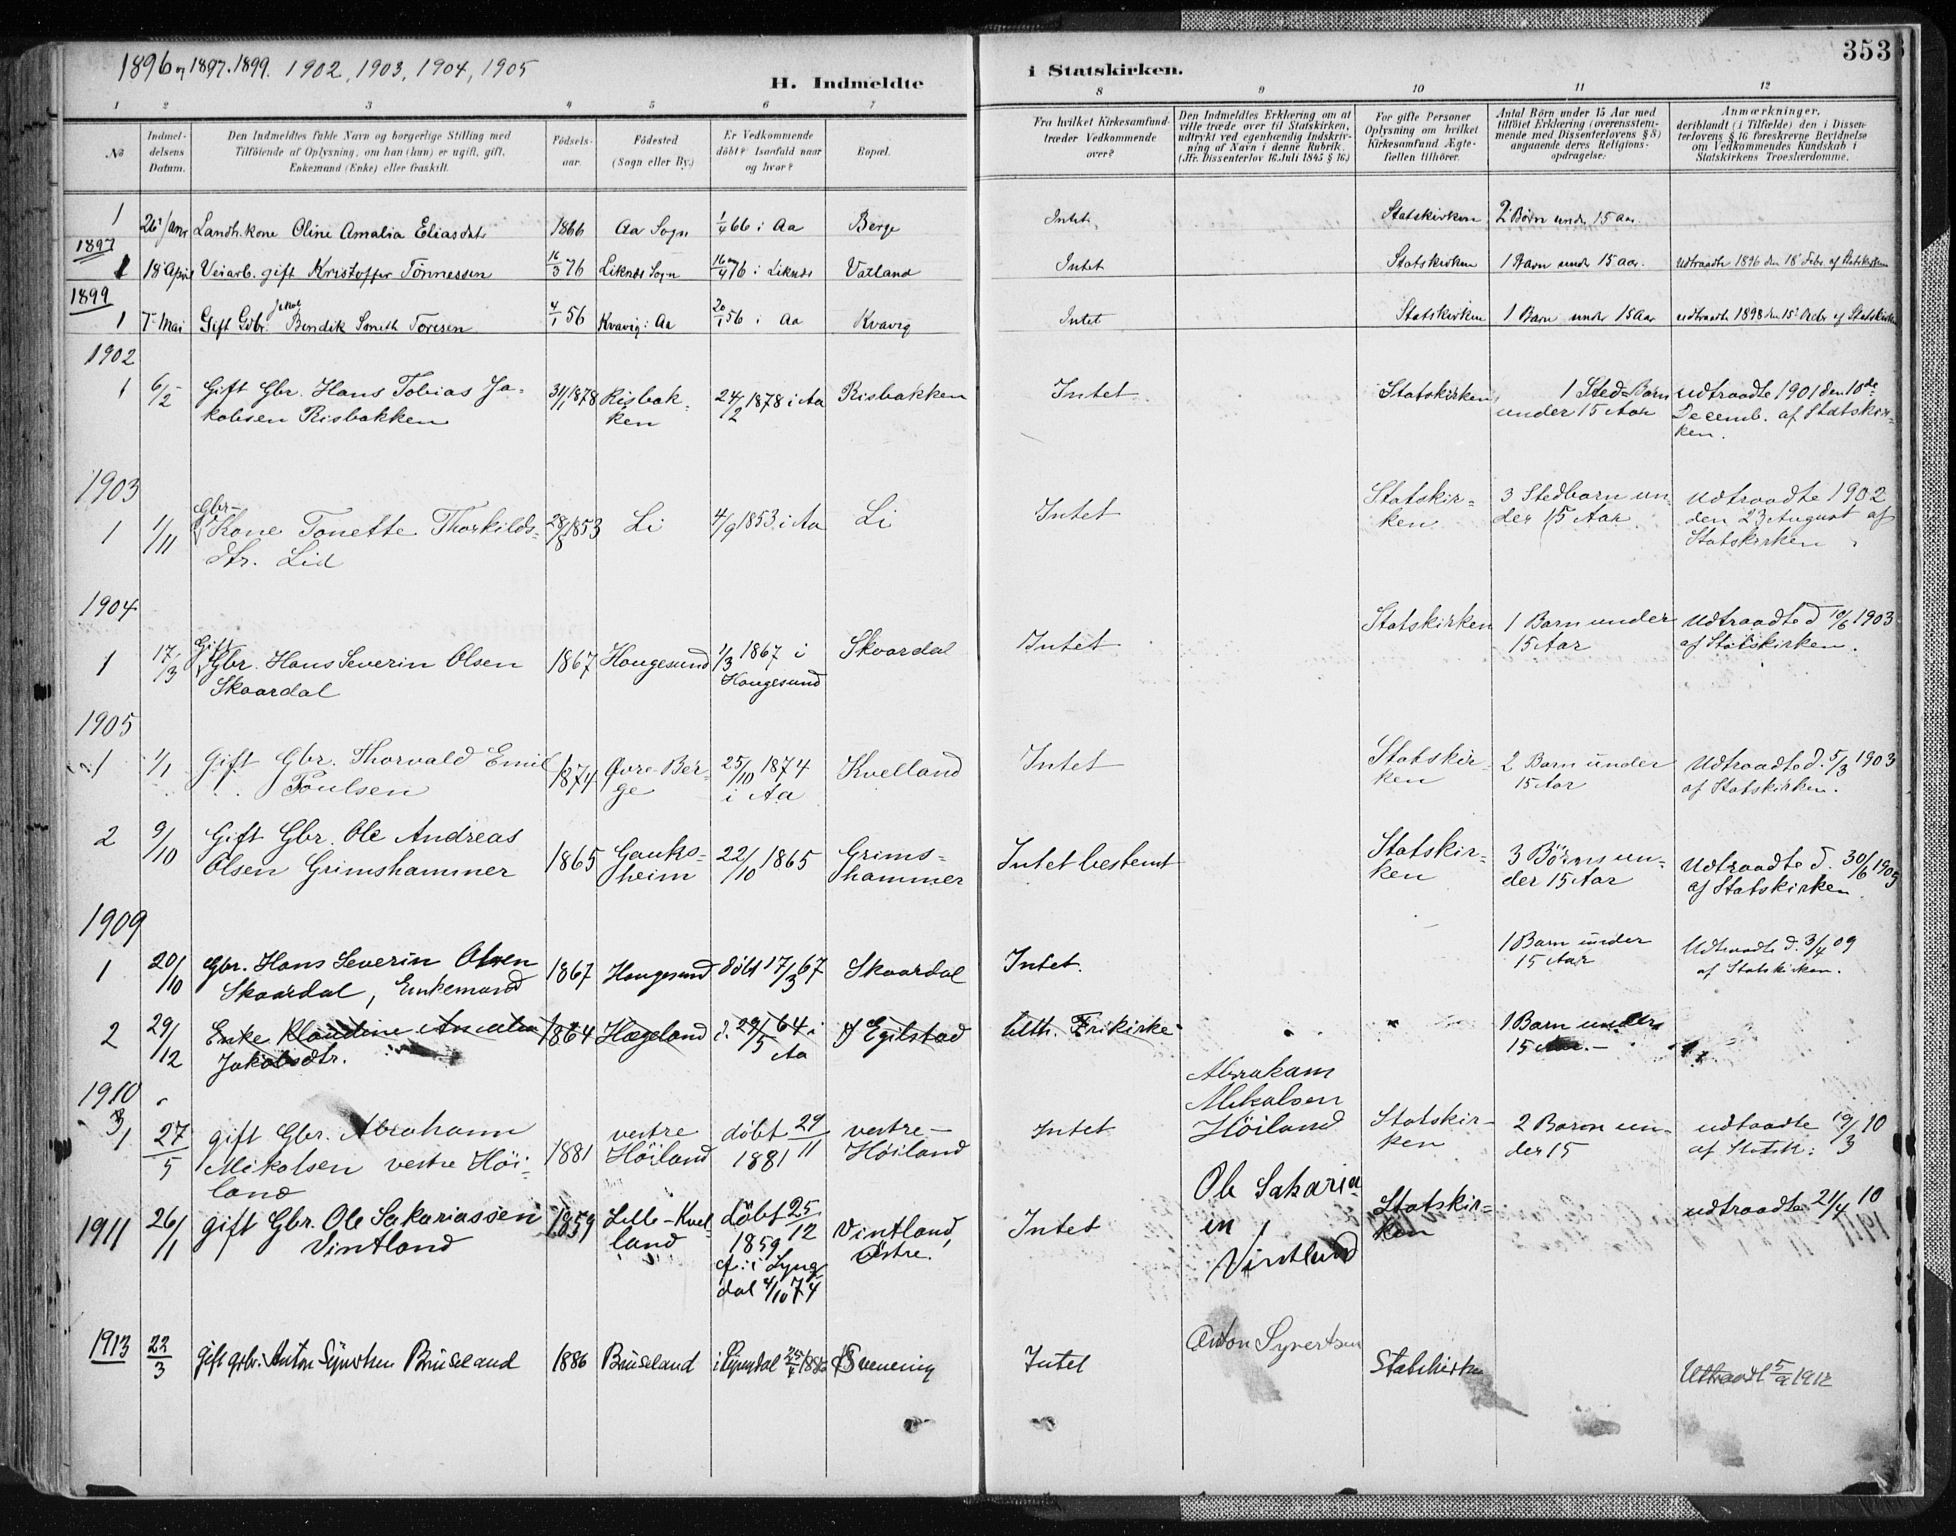 1896 og 1897. 1899. 1902, 1903, 1904, 1905
353
H. Indmeldte i Statskirken.
1 2 3 4 5 6 7 8 9 10 11 12
No
Indmel-
delsens
Datum.
Den Indmeldtes fulde Navn og borgerlige Stilling med
Tilföiende af Oplysning, om han (hun) er ugift, gift,
Enkemand (Enke) eller fraskilt.
Födsels-
aar.
Födested
(Sogn eller By.)
Er Vedkommende
döbt? Isaafald naar
og hvor?
Bopæl.
Fra hvilket Kirkesamfund
træder Vedkommende
over?
Den Indmeldtes Erklæring om at
ville træde over til Statskirken,
udtrykt ved egenhændig Indskriv-
ning af Navn i denne Rubrik.
(Jfr. Dissenterlov 16 Juli 1845 § 16.)
For gifte Personer
Oplysning om hvilket
Kirkesamfund Ægte-
fællen tilhörer.
Antal Börn under 15 Aar med
tilföiet Erklæring (overensstem-
mende med Dissenterlovens § 8)
angaaende deres Religions-
opdragelse.
Anmærkninger,
deriblandt (i Tilfælde) den i Dissen-
terlovens § 16 foreskrevne Bevidnelse
om Vedkommendes Kundskab i
Statskirkens Troeslærdomme.
1 26 Janr Landh.kone Oline Amalia Eliasdtr 1866 Aa Sogn 1/4 66 i Aa Berge Intet Statskirken 2 Børn under 15 aar.
1897
1 18 April Veiarb. gift Kristoffer Tønnessen 16/3 76 Liknes Sogn 16/4 76 i Liknes Vatland Intet Statskirken 1 Barn under 15 aar. Udtraadte 1896 den 18 Febr af Statskirken
1899
1 7 Mai Gift Gbr. Bendik Smith Toresen 4/1 56 Kvavig i Aa 20/1 56 i Aa Kvavig Intet Statskirken 1 Barn under 15 Aar udtraadte 1898 den 15 Octbr af Statskirken
1902
1 6/2 Gift Gbr. Hans Tobias Ja- 31/1 1878 Risbak- 24/2 1878 i Aa Risbakken Intet Statskirken 1 Sted-Barn udtraadte 1901 den 10de
kobsen Risbakken ken under 15 Aar Decemb. af Statskir-
ken.
1903
Gbr-
1 1/11 Kone Tonette Thorkilds- 28/8 1853 Li 4/9 1853 i Aa Li Intet Statskir- 3 Stedbarn un- Udtraadte 1902
dtr. Lid ken der 15 Aar den 23 August af
Statskirken
1904
Gift
1 17/3 Gbr. Hans Severin Olsen 1867 Hougesund 1/3 1867 i Skaardal Intet Statskirken 1 Barn under Udtraadte d 10/6 1903
Skaardal Hougesund 15 Aar af Statskirken.
1905
1 1/1 Gift Gbr. Thorvald Emil 1874 Øvre Ber- 25/10 1874 Kvelland Intet Statskir- 2 Barn under Udtraadte d. 5/3 1903
Poulsen ge i Aa ken 15 Aar af Statskirken.
2 9/10 Gift Gbr. Ole Andreas 1865 Gauks- 22/10 1865 Grims- Intet bestemt Statskir- 3 Børn un- Udtraadte d. 30/6 1905
Olsen Grimshammer heim hammer ken der 15 Aar af Statskirken
1909
1 20/10 Gbr. Hans Severin Olsen 1867 Hougesund døbt 17/3 67 Skaardal Intet. 1 Barn under Udtraadte d. 3/4 09
Skaardal, Enkemand 15 Aar af Statskirken.
2 29/12 Enke Klaudine Amalia 1864 Hægeland d. 29/5 64 i Egilstad luth. Frikirke 1 Barn under
Jakobsdtr. Aa 15 Aar.-
1910
1 27/5 gift Gbr. Abrahamn 1881 vestre døbt 29/11 vestre- Intet Abrakam Statskir- 2 Barn un- udtraadte 19/3 10
Mikalsen vestre Høi- Høiland 1881 Høiland Mekalsen ken der 15 af Statsk:
land Höiland
1911 26/1 gift Gbr. Ole Sakariassen 1859 Lille-Kvel- døbt 25/12 Vintland, Intet Ole Sakaria Statskir- udtraadte 21/4 10
Vintland land 1859 Østre. en ken
cf. i Lyng Vintland
dal 4/10 74
1913 22/3 gift grbr. Anton Syvertsen Bruseland 1886 Bruseland i Lyngdal 25/4 1886 Intet Anton Syvertsen Statskirken Uttraadt 5/9 1912